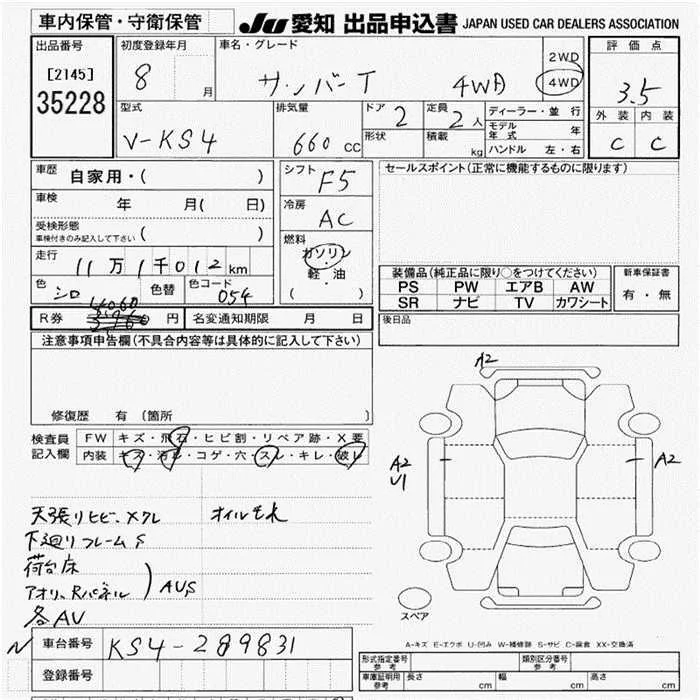 車内保管・守衛保管
JU 愛知 出品申込書 JAPAN USED CAR DEALERS ASSOCIATION
出品番号
[2145]
35228
初度登録年月
8 月
車名・グレード
サンバーT 4WD
2WD
4WD
評価点
3.5
外装 内装
C C
型式
V-KS4
排気量
660 CC
ドア 2
形状
定員 2 人
積載 kg
ディーラー・並行
モデル年式 年
ハンドル 左・右
車歴
自家用・( )
車検
年 月( 日)
受検形態
車検付きのみ記入して下さい ( )
走行
11万1千012km
色 シロ
色替
色コード 054
シフト
F5
冷房
AC
燃料
ガソリン
・
軽・油
( )
セールスポイント(正常に機能するものに限ります)
装備品(純正品に限り○をつけてください)
PS PW エアB AW
SR ナビ TV カワシート
新車保証書
有・無
R券 円
名変通知期限 月 日
後日品
注意事項申告欄(不具合内容等は具体的に記入して下さい)
修復歴 有(箇所 )
検査員記入欄
FW キズ・飛石・ヒビ割・リペア跡・X要
内装 キズ・汚レ・コゲ・穴・スレ・キレ・破レ
天張りヒビ、メクレ オイルモレ
下廻りフレームS
荷台床
アオリ、Rパネル ) AUS
各AU
A2
A2
U1
A2
スペア
A-キズ E-エクボ U-凹み W-補修跡 S-サビ C-腐食 XX-交換済
N 車台番号 KS4-289831
登録番号
形式指定番号 参考
類別区分番号 参考
車庫証明用 参考
長さ cm
幅 cm
高さ cm